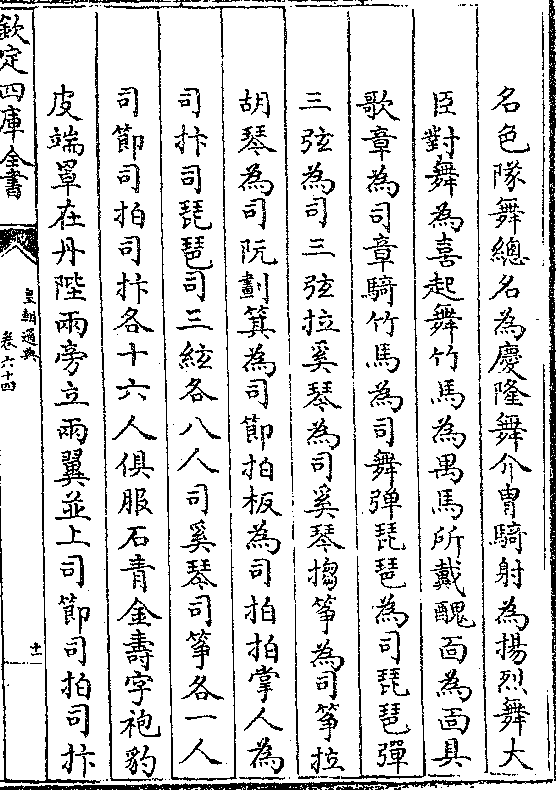 名色隊舞總名為慶隆舞介冑騎射為揚烈舞大
臣對舞為喜起舞竹馬為禺馬所戴醜面為面具
歌章為司章騎竹馬為司舞弹琵琶為司琵琶彈
三弦為司三弦拉奚琴為司奚琴搊筝為司筝拉
胡琴為司阮劃箕為司節拍板為司拍拍掌人為
司抃司琵琶司三絃各八人司奚琴司筝各一人
司節司拍司抃各十六人俱服石青金壽字袍豹
皮端罩在丹陛兩旁立兩翼並上司節司拍司抃
欽定四庫全書
皇朝通典
卷六十四
十一